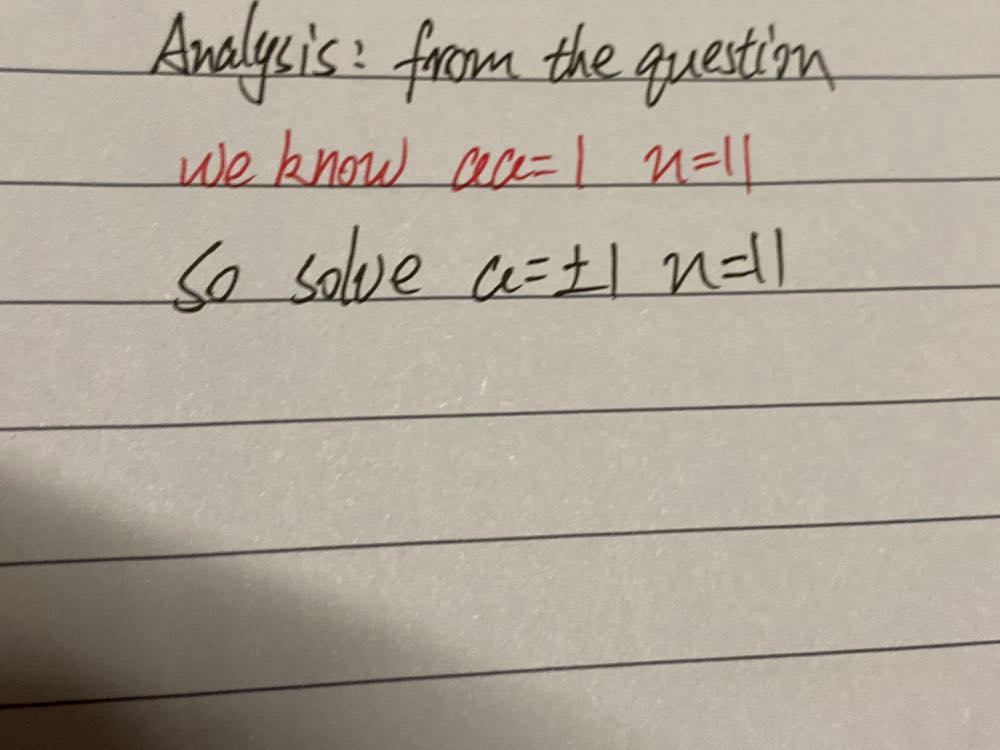 Analysis: from the question
we know aa=1 n=11
So solve a=±1 n=11